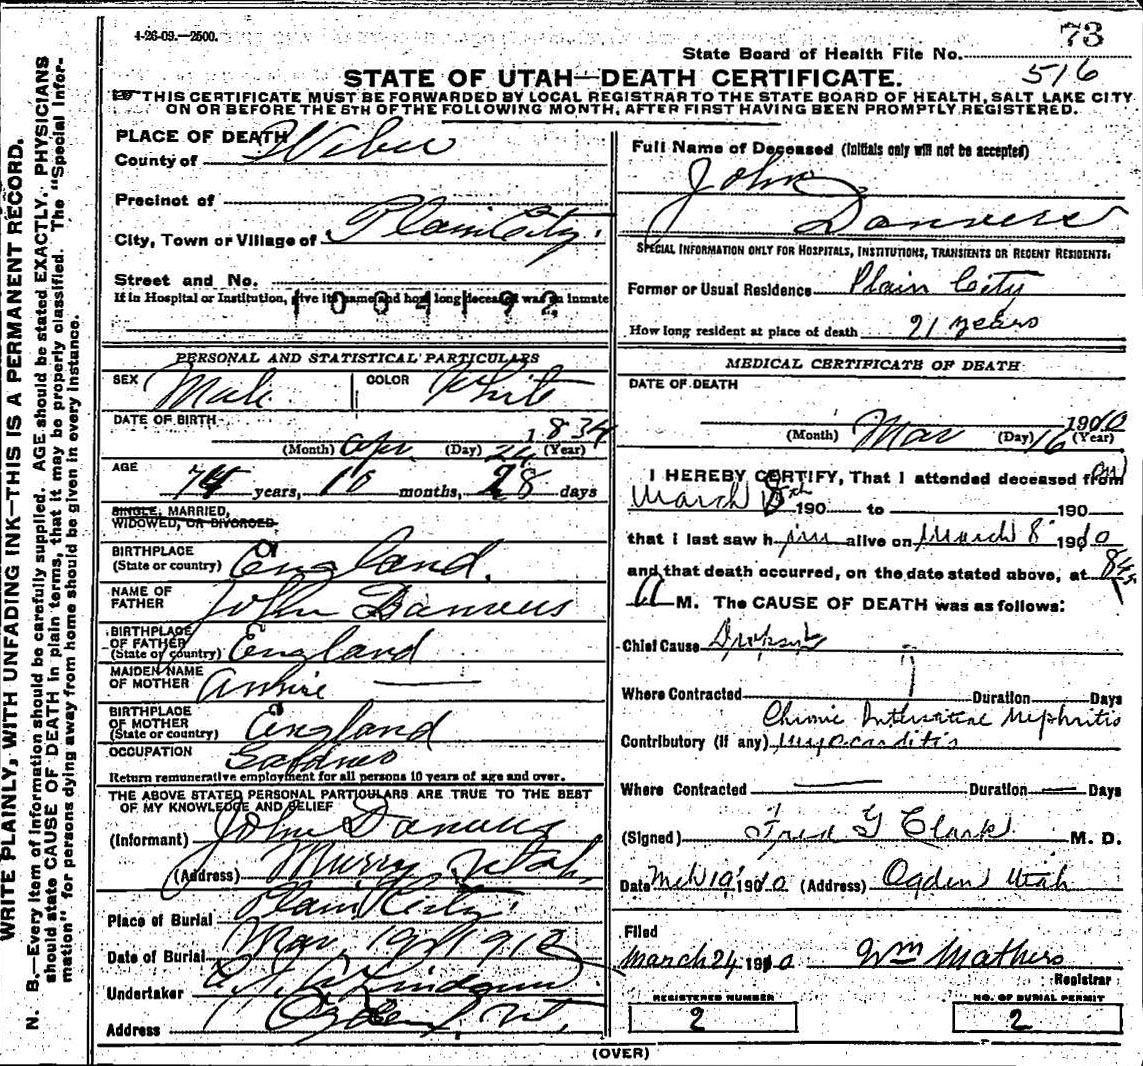 4-26-09.—2500.
73
State Board of Health File No.
516
STATE OF UTAH—DEATH CERTIFICATE.
THIS CERTIFICATE MUST BE FORWARDED BY LOCAL REGISTRAR TO THE STATE BOARD OF HEALTH, SALT LAKE CITY
ON OR BEFORE THE 5TH OF THE FOLLOWING MONTH, AFTER FIRST HAVING BEEN PROMPTLY REGISTERED.
WRITE PLAINLY, WITH UNFADING INK—THIS IS A PERMANENT RECORD.
N. B.—Every item of information should be carefully supplied. AGE should be stated EXACTLY. PHYSICIANS
should state CAUSE OF DEATH in plain terms, that it may be properly classified. The "Special Infor-
mation" for persons dying away from home should be given in every instance.
PLACE OF DEATH
County of Weber
Precinct of
City, Town or Village of Plain City.
Street and No.
If in Hospital or Institution, give its name and how long deceased was an inmate
1004192
PERSONAL AND STATISTICAL PARTICULARS
SEX Male COLOR White
DATE OF BIRTH
(Month) Apr (Day) (Year) 1834
AGE
years, 10 months, 28 days
SINGLE, MARRIED,
WIDOWED, OR DIVORCED
BIRTHPLACE
(State or country) England.
NAME OF
FATHER John Danvers
BIRTHPLACE
OF FATHER
(State or country) England
MAIDEN NAME
OF MOTHER Annie
BIRTHPLACE
OF MOTHER
(State or country) England
OCCUPATION
Return remunerative employment for all persons 10 years of age and over.
THE ABOVE STATED PERSONAL PARTICULARS ARE TRUE TO THE BEST
OF MY KNOWLEDGE AND BELIEF
(Informant) John Danvers
(Address) Murry, Utah,
Place of Burial Plain City.
Date of Burial Mar. 19th 1910
Undertaker
Address Ogden, Ut,
Full Name of Deceased (Initials only will not be accepted)
John
Danvers
SPECIAL INFORMATION ONLY FOR HOSPITALS, INSTITUTIONS, TRANSIENTS OR RECENT RESIDENTS:
Former or Usual Residence Plain City
How long resident at place of death 21 years
MEDICAL CERTIFICATE OF DEATH
DATE OF DEATH
(Month) Mar (Day) 16 (Year) 1910
I HEREBY CERTIFY, That I attended deceased from on
March 190 to 190
that I last saw him alive on March 8 1910
and that death occurred, on the date stated above, at 845
A M. The CAUSE OF DEATH was as follows:
Chief Cause Dropsy
Where Contracted Duration Days
Chronic Interstitial Nephritis
Contributory (if any) Myocarditis
Where Contracted Duration Days
(Signed) Fred G Clark M. D.
Date Mch 19 1910 (Address) Ogden Utah
Filed
March 24 1910 Wm Mathers
Registrar
REGISTERED NUMBER
2
NO. OF BURIAL PERMIT
2
(OVER)